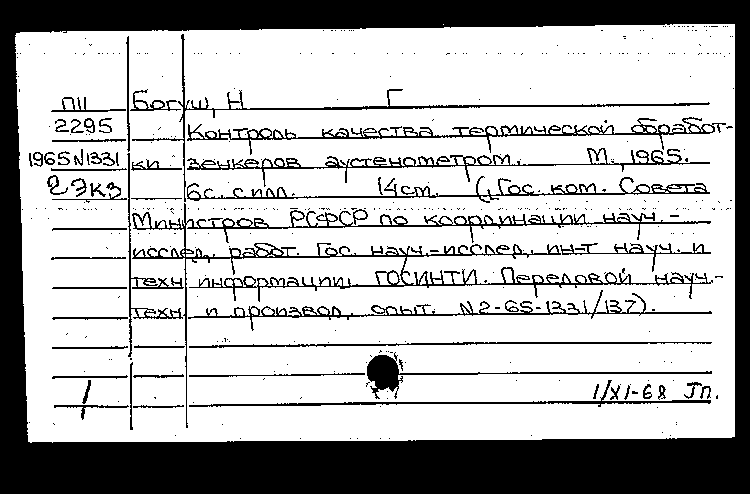 ПII Богуш, Н Г
2295 Контроль качества термической обработ-
1965 N1331 ки зенкеров аустенометром. М., 1965.
2 экз 6с. с илл. 14см. (Гос. ком. Совета
Министров РСФСР по координации науч.-
исслед. работ. Гос. науч.-исслед. ин-т науч. и
техн информации. ГОСИНТИ. Передовой науч.-
техн и производ. опыт. N2-65-1331/137).
1/XI-68